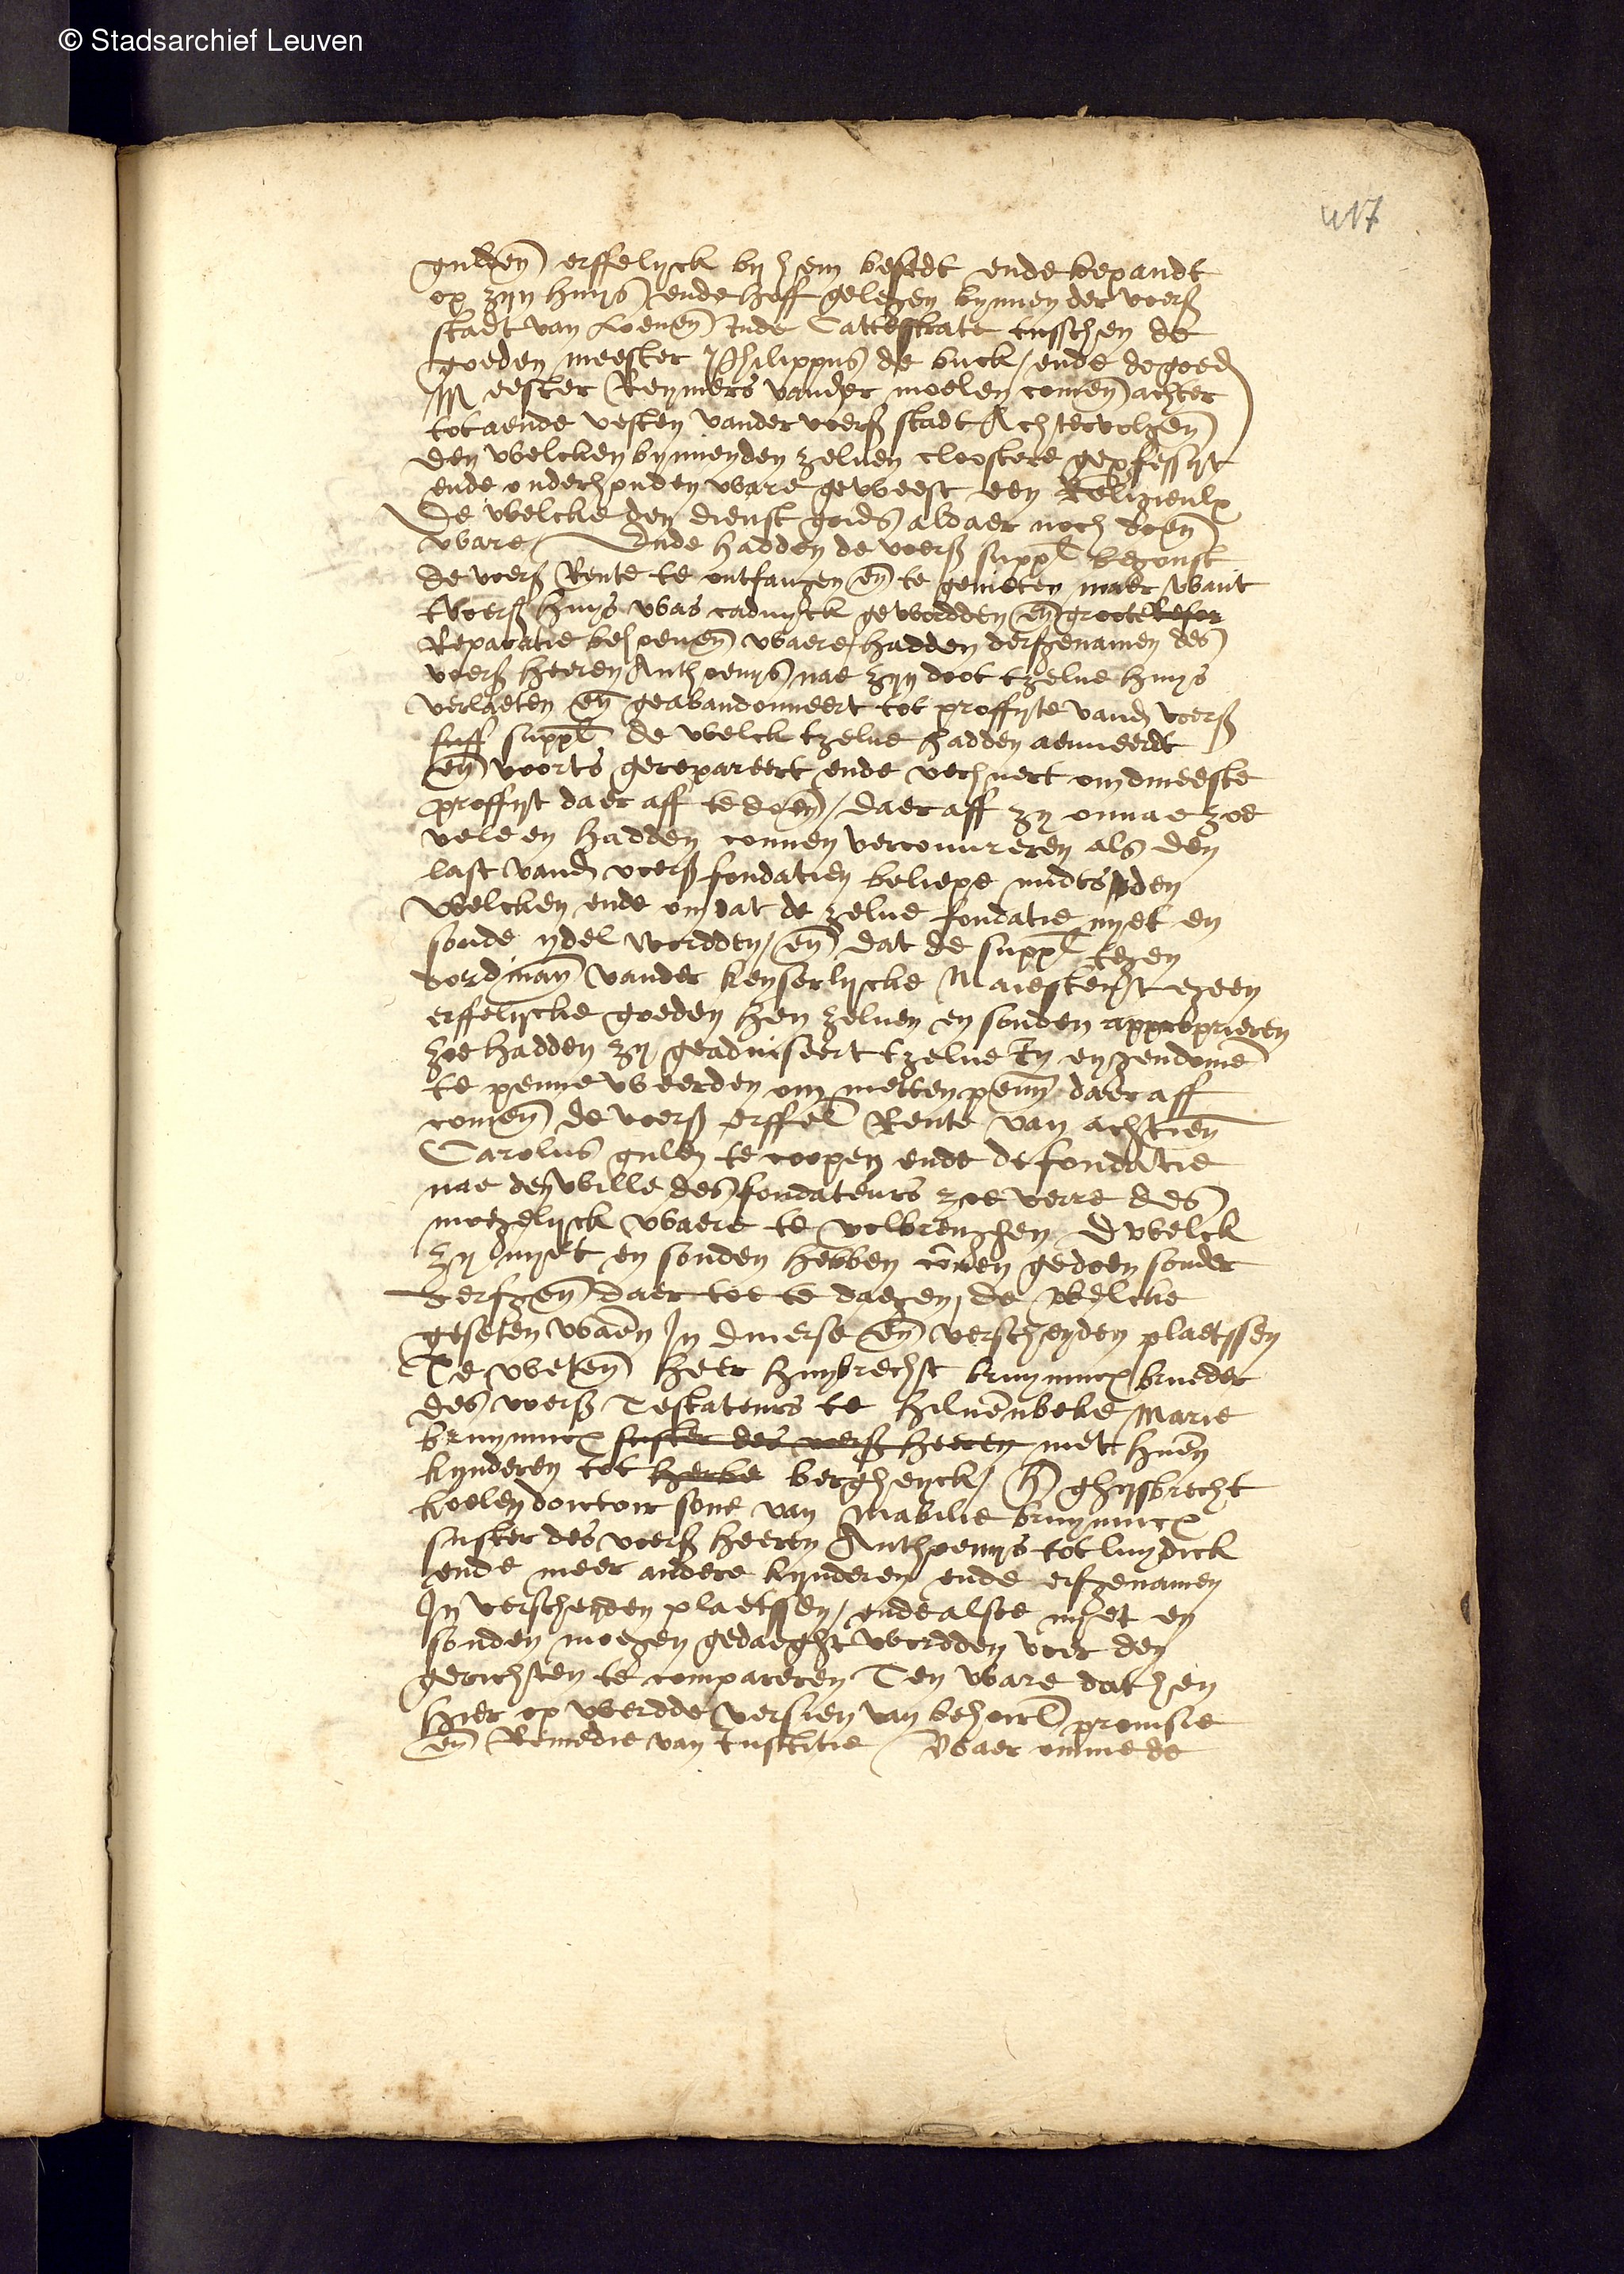 © Stadsarchief Leuven
417
gulden erffelyck by hem besedt ende bepandt
op zyn huys ende hoff gelegen bynnen der voers
stadt van Loeuen Inde Cattestrate tusschen de
goeden meester Philippus de buck / ende de goed
Meester Reyniers vander moelen comen achter
tot aende vesten vander voers stadt Achtervolgen
den welcken bynnen den zeluen cloostere geprofessyt
ende onderhouden ware geweest een Religieulx
De welcke den dienst goids aldaer noch doen
ware / Ende hadden de voers suppl begonst
de voers Rente te ontfangen en te genieten maer want
tvoers huys was caduyck gewordden en groote
Reparatie behoeuen waere / hadden derfgenamen des
voers heeren Anthoenys nae zyn doot tzelue huys
verlaeten en geabandonneert tot proffyte vand voers
suppl de welck tzelue hadden aenueerdt
en voorts gerepareert ende verhuert om dmeeste
proffyt daer aff te doen / daer aff zy omnae zoe
vele en hadden connen vercouureren als den
last vand voers fondatien beliepe midts den
welcken ende om dat de zelue fondatie nyet en
soude ydel wordden / en dat de suppl tegen
dordinan vander keyserlycke Maiesteyt egeen
erffelycke goeden hen zeluen en souden approprieren
zoe hadden zy geaduiseert tzelue In eygendome
te penneweerden om metten penn daer aff
comen de voers erffel Rente van achtien
Carolus guldn te coopen ende de fondatie
nae den wille des fondateurs zoe verre des
moegelyck waere te volbrenghen Dwelck
zy nyet en souden hebben connen gedoen sonder
derfgen daer toe te daegen / de welcke
geseten waeren In diuerse en verscheyden plaetssen
Te weten heer huybrecht bruynincx brueder
des voers Testateurs te hiluerenbeke Marie
bruynincx suster des voers heeren met hueren
kynderen tot berghenyck / ghysbrecht
koelen doictoir sone van Mabilie bruynincx
suster des voers heeren Anthoenys tot luydick
ende meer andere kynderen ende erfgenamen
In verscheyden plaetssen / ende alsoe nyet en
souden moegen gedaeght wordden voer den
gerichten te compareren Ten ware dat hen
hier op werdde versien van behoirl prouisie
en Remedie van Iustitie / Waer omme de